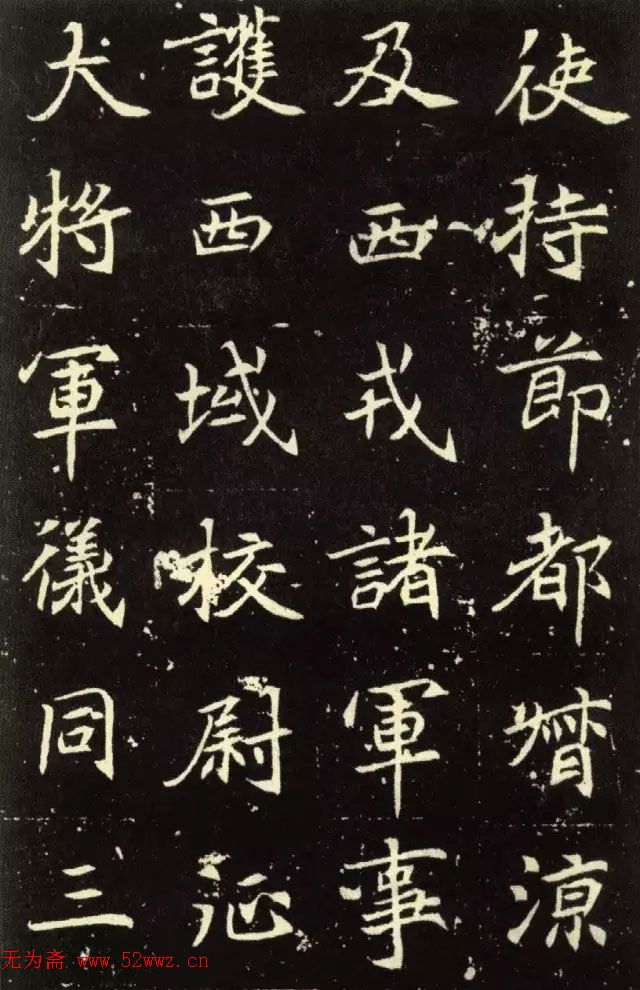 使持節都督涼
及西戎諸軍事
護西域校尉征
大將軍儀同三
无为斋 www.52wwz.cn